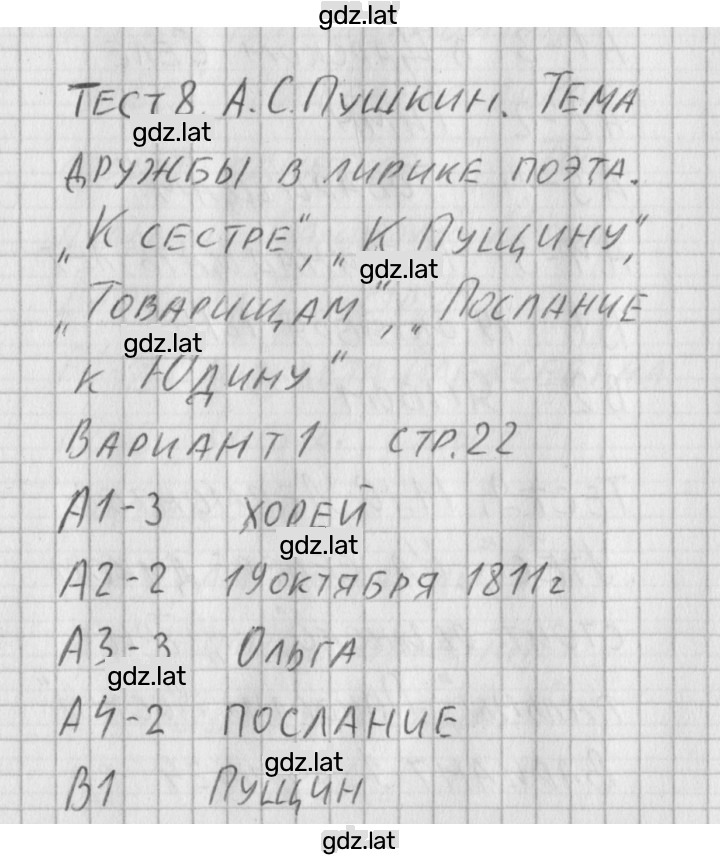 gdz.lat
Тест 8. А.С. Пушкин. Тема
gdz.lat
дружбы в лирике поэта.
„К сестре", „К Пущину",
gdz.lat
„Товарищам", „Послание
gdz.lat
к Юдину"
Вариант 1 стр. 22
А1-3 хорей
gdz.lat
А2-2 19 октября 1811г
А3-3 Ольга
gdz.lat
А4-2 послание
gdz.lat
В1 Пущин
gdz.lat